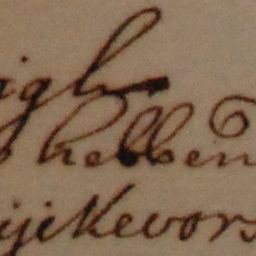 igh
hebben
ijckevors